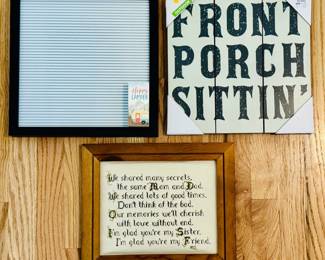 FRONT
PORCH
SITTIN'
We shared many secrets,
the same Mom and Dad.
We shared lots of good times,
Don't think of the bad.
Our memories we'll cherish
with love without end.
I'm glad you're my Sister,
I'm glad you're my Friend.